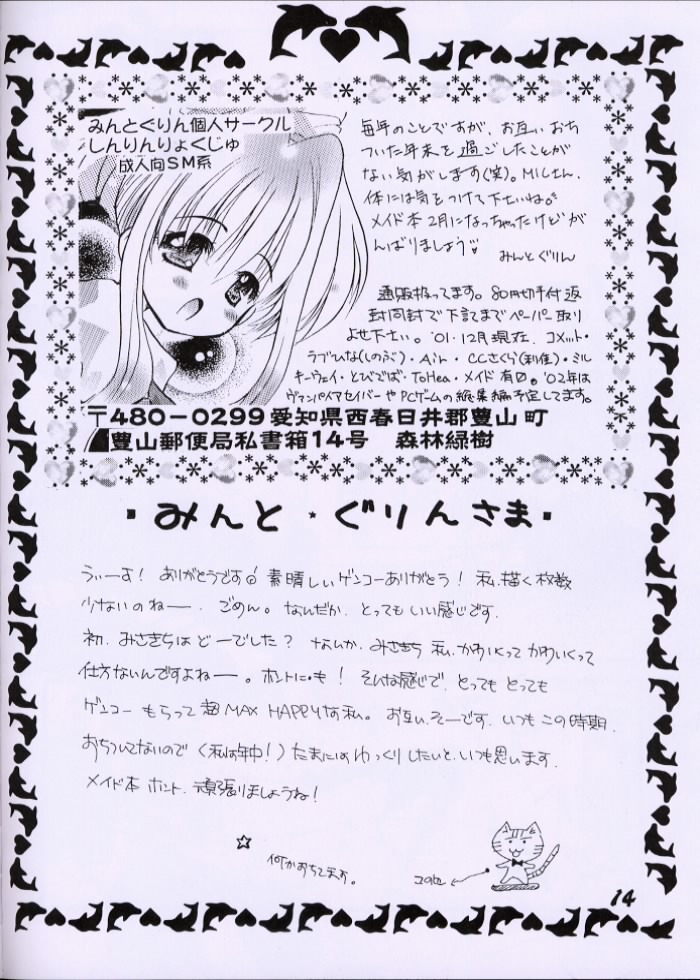 みんとぐりん個人サークル
しんりんりょくじゅ
成人向SM系
毎年のことですが、お互いおち
ついた年末を過ごしたことが
ない気がします(笑)。MICさん、
体には気をつけて下さいね。
メイド本2月になっちゃったけどが
んばりましょう
みんとぐりん
通販扱ってます。80円切手付返
封同封で下記までペーパー取り
よせ下さい。'01・12月現在、コメット・
ラブひな(しのぶ)・Air・CCさくら(利佳)・ミル
キーウェイ・とびでばぐ・ToHea・メイド有り。'02年は
ヴァンパイアセイバーやPCゲームの総集編予定してます。
〒480-0299愛知県西春日井郡豊山町
豊山郵便局私書箱14号 森林緑樹
みんと・ぐりんさま
うぃーす! ありがとうです! 素晴しいゲンコーありがとう! 私、描く枚数
少ないのねー、ごめん。なんだか、とってもいい感じです。
初、みさきちはどーでした? なんか、みさきち 私、かわいくって かわいくって
仕方ないんですよねー。ホントにも! そんな感じで、とっても とっても
ゲンコー もらって 超 MAX HAPPYな私。お互い、そーです、いつもこの時期、
おちついてないので(私は年中!)たまにはゆっくりしたいと、いつも思います。
メイド本 ホント、頑張りましょうね!
何かおちてます。
14